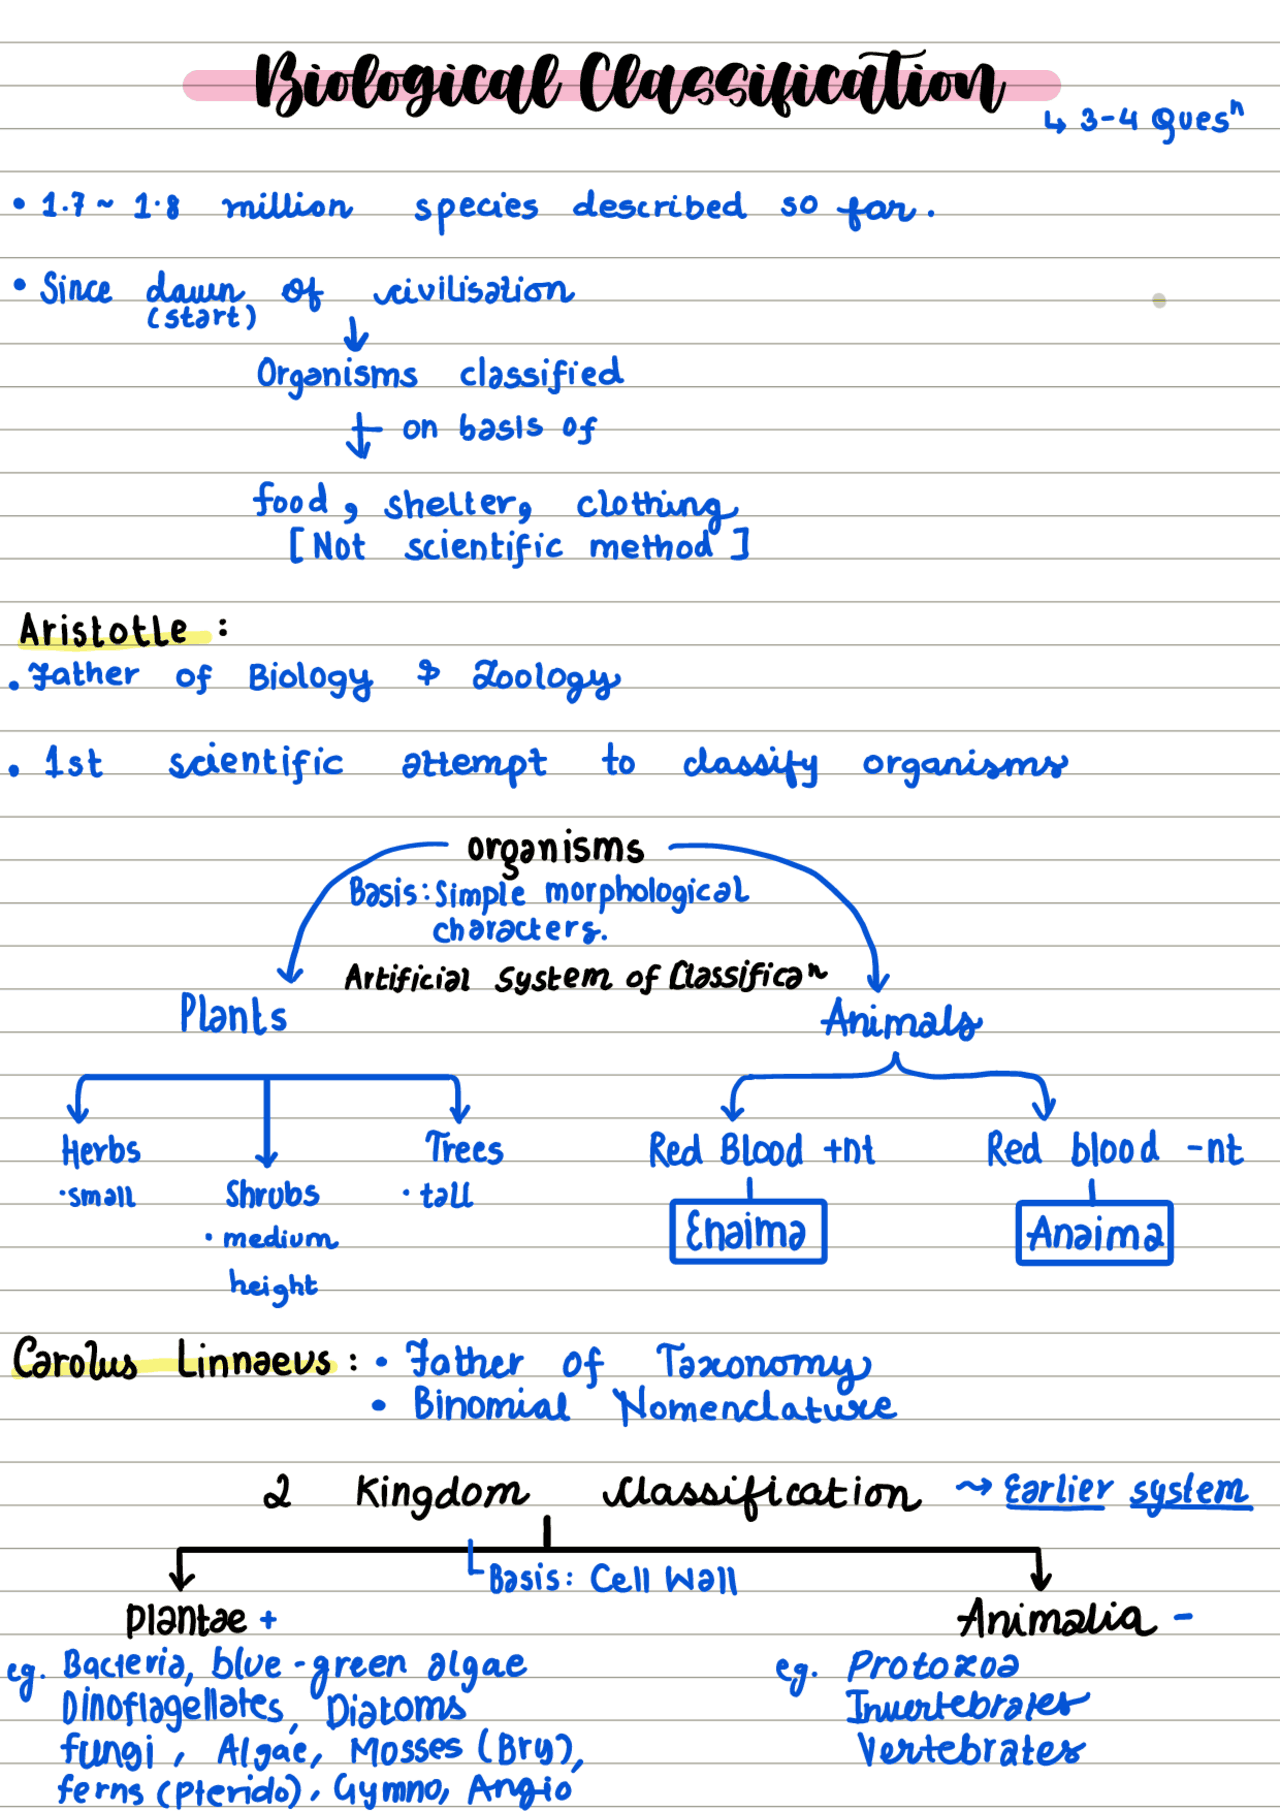 Biological Classification
↳ 3-4 Quesⁿ
• 1.7 ~ 1.8 million species described so far.
• Since dawn of civilisation
(start)
↓
Organisms classified
↓ on basis of
food, shelter, clothing
[Not scientific method]
Aristotle :
• Father of Biology & Zoology
• 1st scientific attempt to classify organisms
organisms
Basis: Simple morphological
characters.
Artificial System of Classificaⁿ
Plants Animals
Herbs Trees Red Blood +nt Red blood -nt
• small Shrubs • tall
• medium Enaima Anaima
height
Carolus Linnaeus : • Father of Taxonomy
• Binomial Nomenclature
2 Kingdom Classification ⇝ Earlier system
Basis: Cell Wall
Plantae + Animalia -
eg. Bacteria, blue-green algae eg. Protozoa
Dinoflagellates, Diatoms Invertebrates
fungi, Algae, Mosses (Bry), Vertebrates
ferns (Pterido), Gymno, Angio